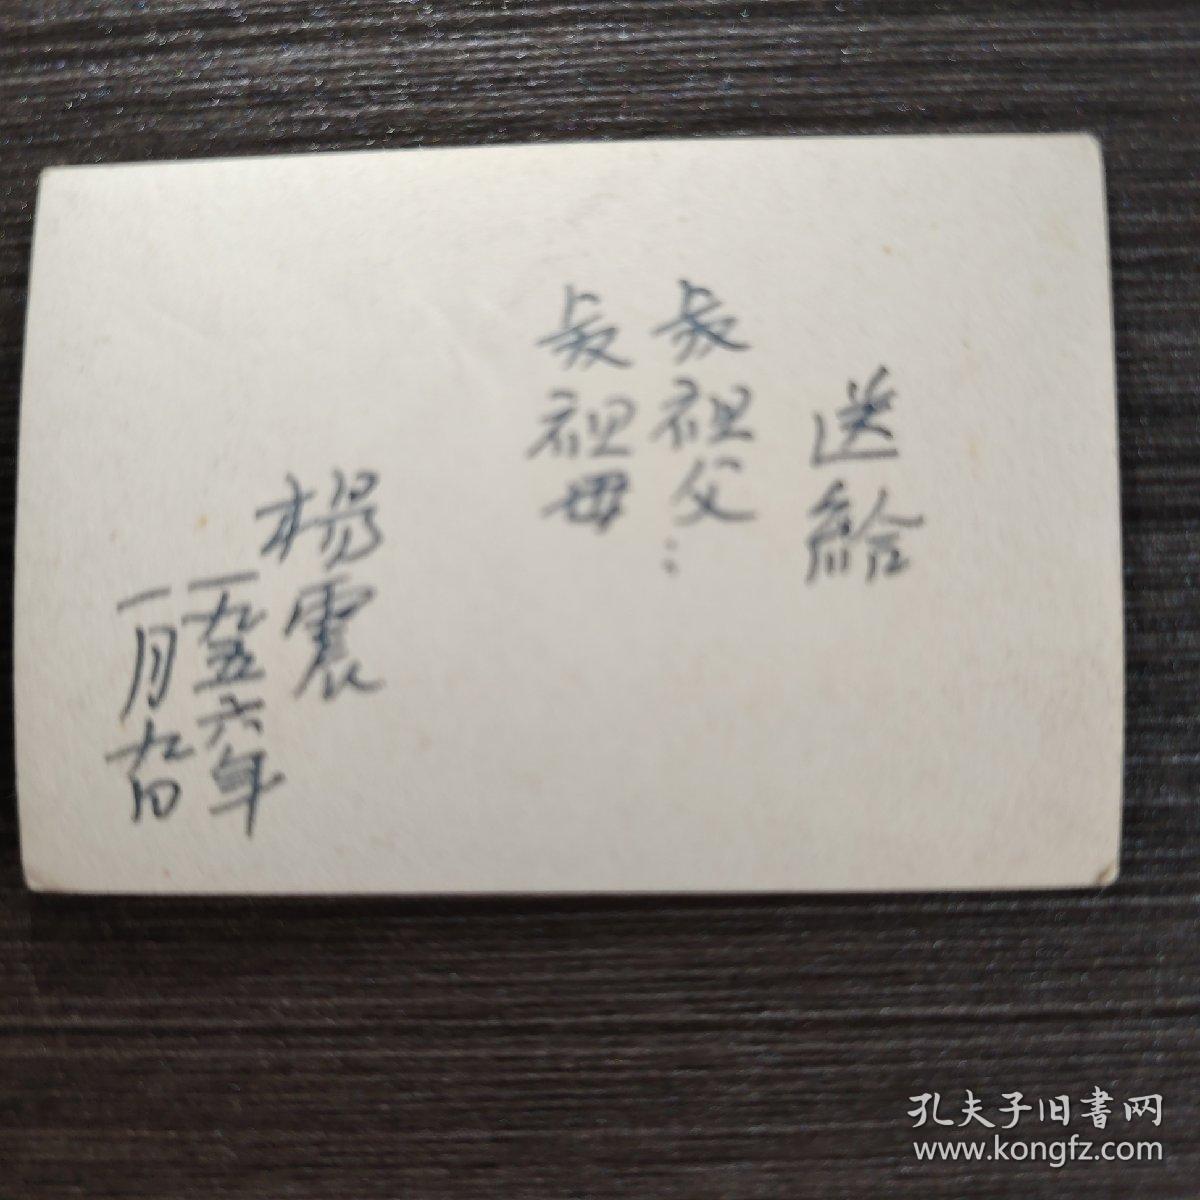 送給
叔祖父：
叔祖母
楊震
一九五六年
一月九日
孔夫子旧書网
www.kongfz.com